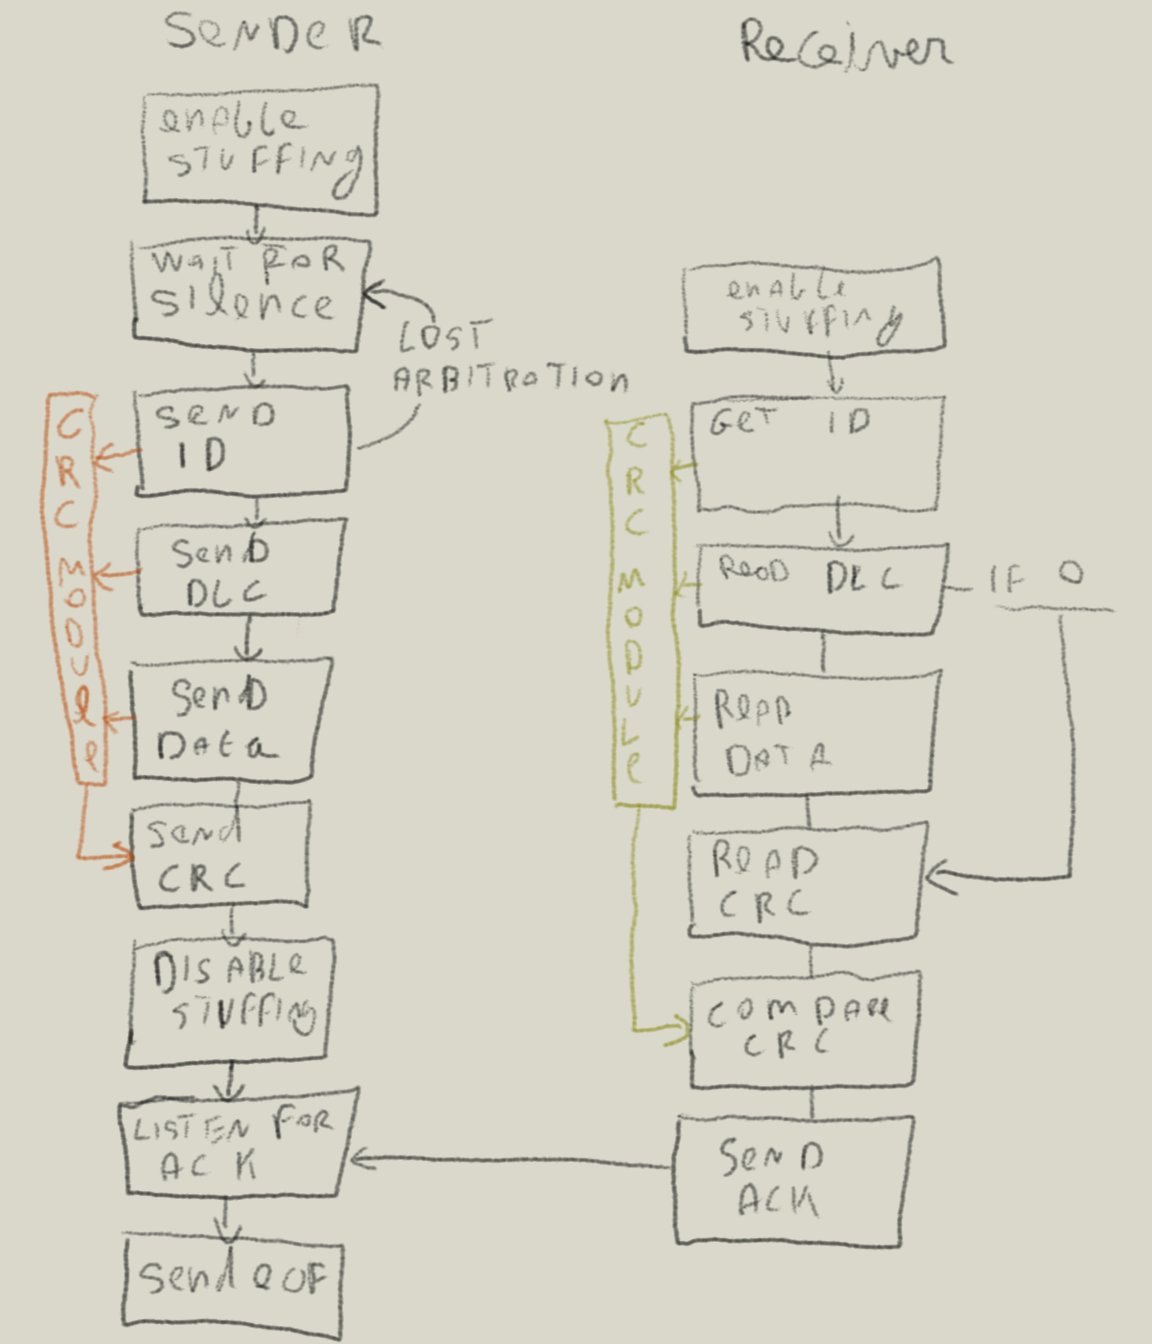 SENDER
enable
STUFFING
WAIT FOR
Silence
LOST
ARBITRATION
SEND
ID
SenD
DLC
SenD
Data
Send
CRC
DISABLe
STUFFING
LISTEN FOR
ACK
Send eOF
CRC MODULe
Receiver
enable
STUFFINg
GeT ID
ReaD DLC
IF 0
ReAD
DATA
ReAD
CRC
COMPARe
CRC
SenD
ACK
CRC MODULe